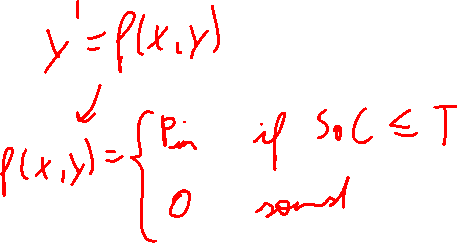 y' = f(x,y)
f(x,y) = { Pin if SoC ≤ T
0 sonst